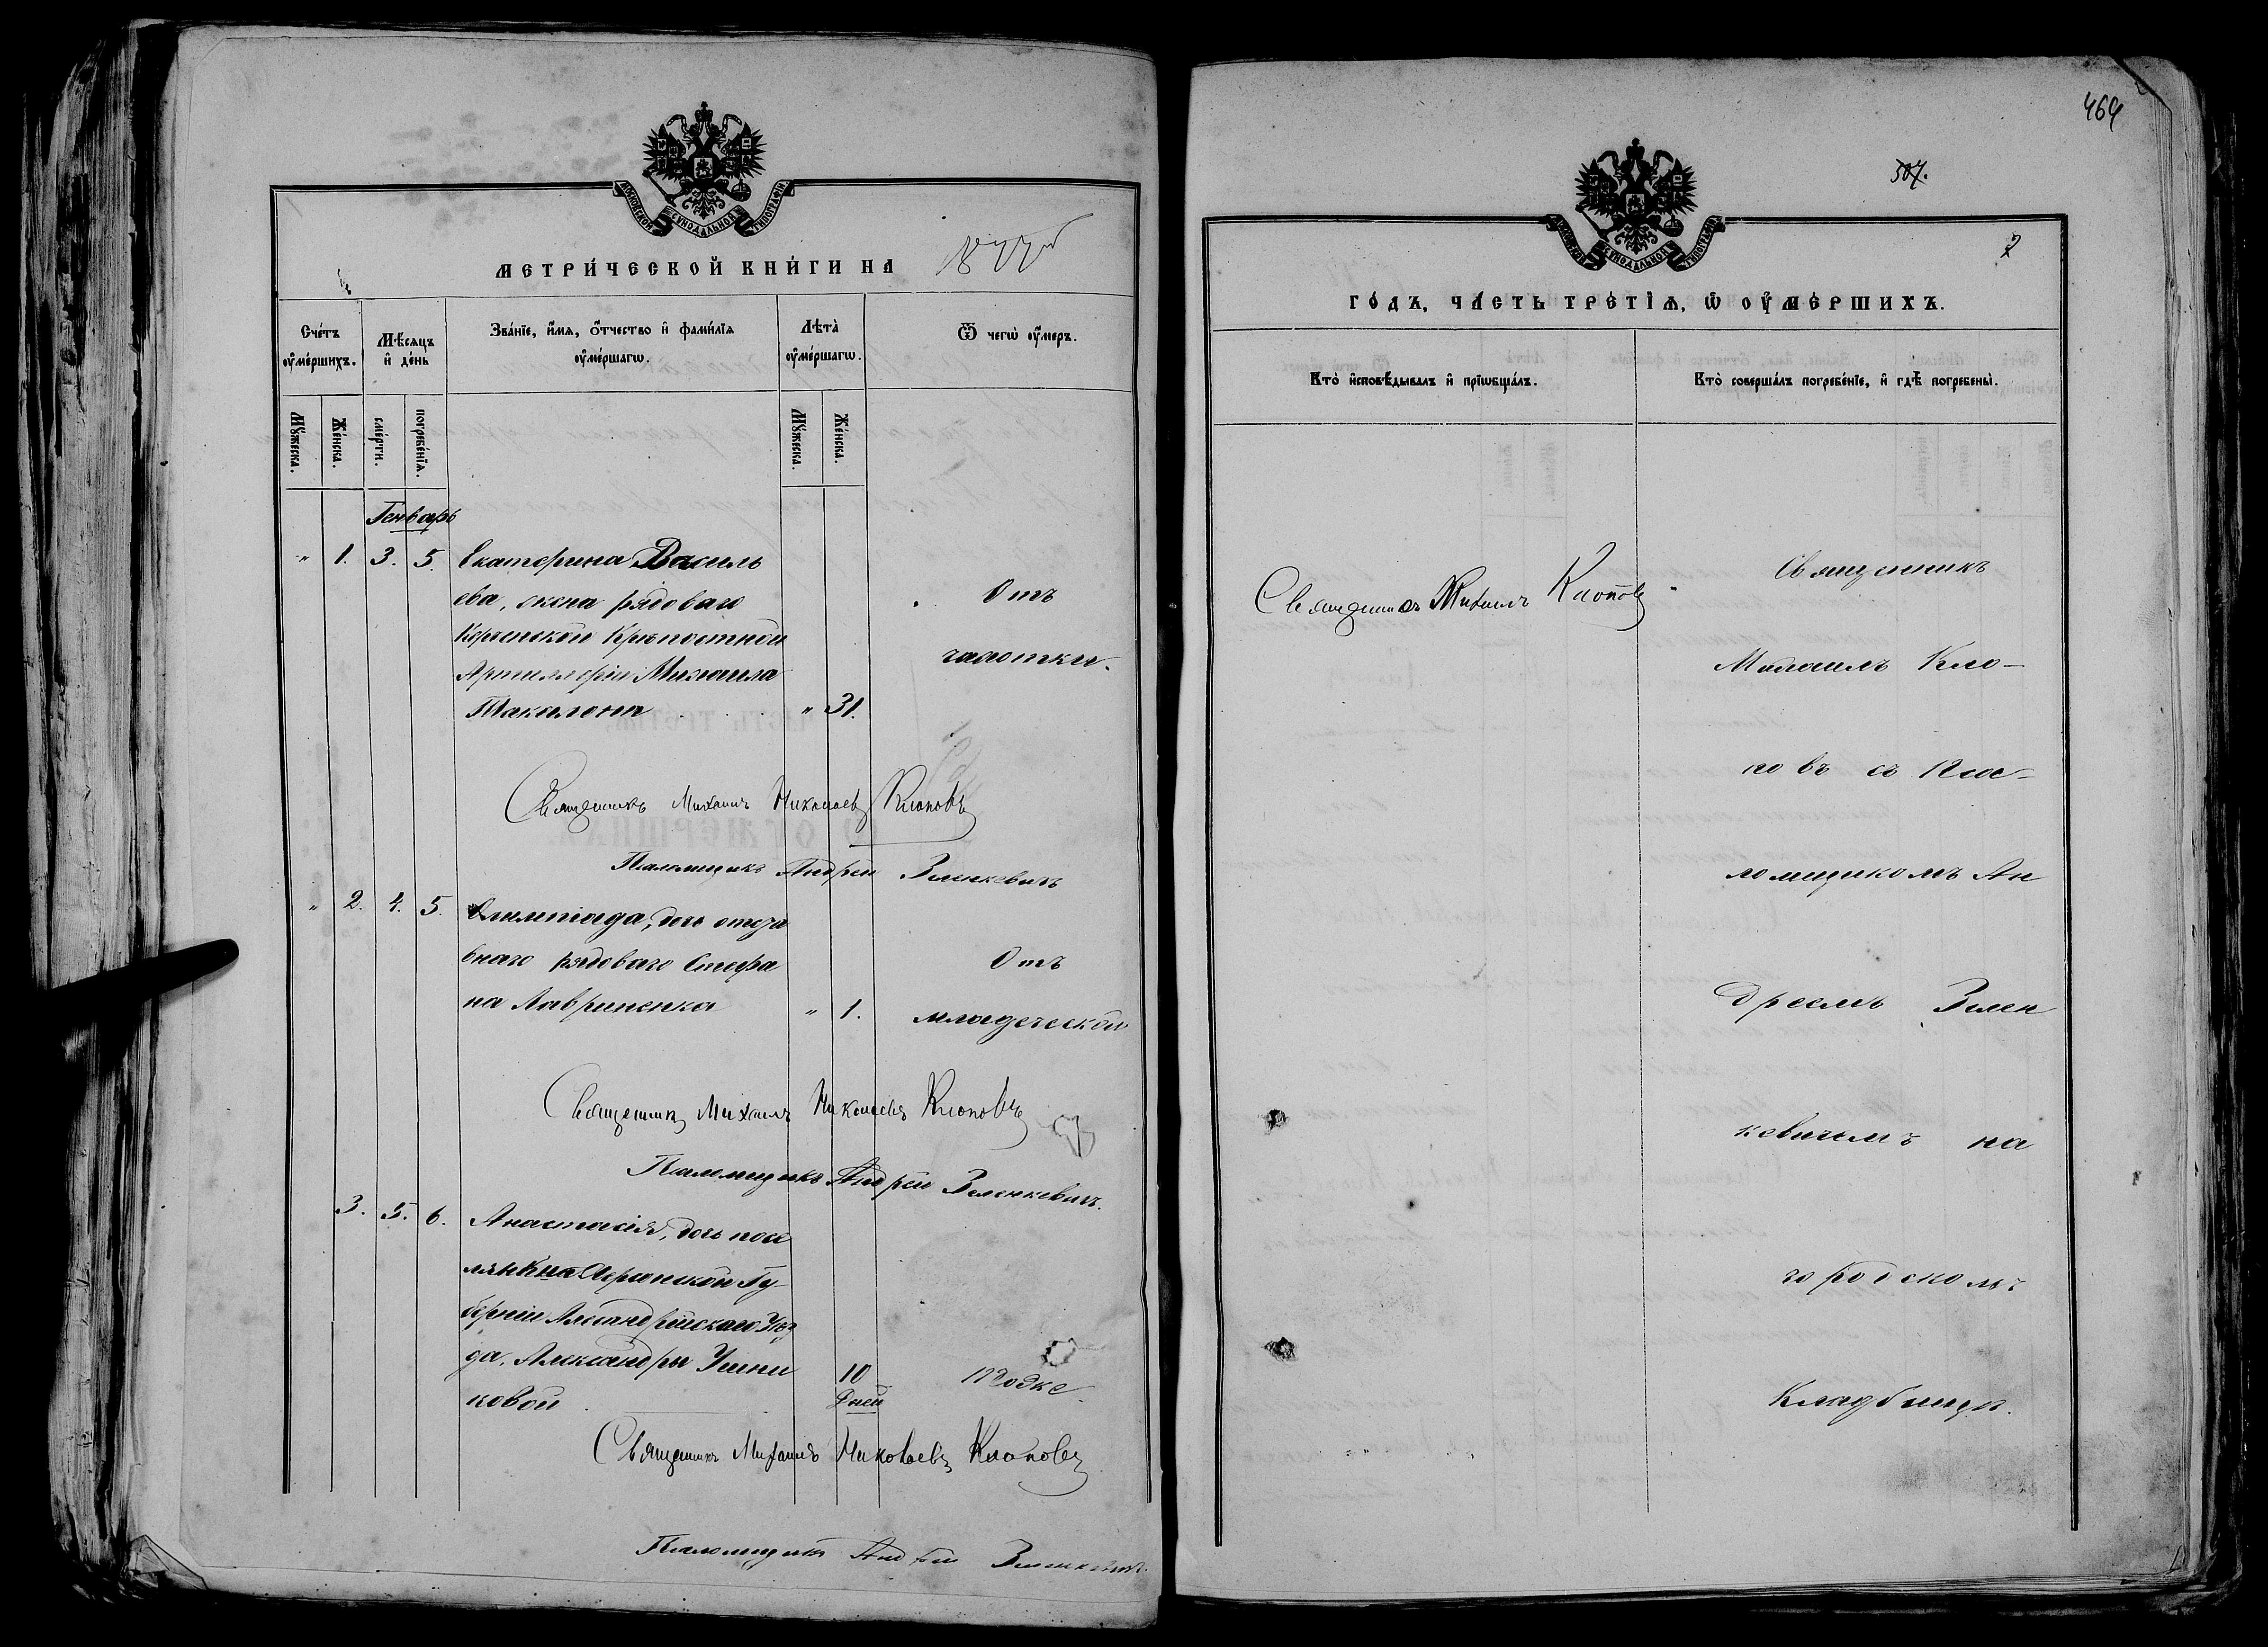 МОСКОВСКОЙ СѴНОДАЛЬНОЙ ТИПОГРАФІИ
МЕТРИ́ЧЕСКОЙ КНИ́ГИ НА 1877й
Сче́тъ ᲂу҆ме́ршихъ.
Мѣ́сяцъ и҆ де́нь
Зва́нїе, и҆́мя, ѻ҆́тчество и҆ фами́лїя ᲂу҆ме́ршагѡ.
Лѣта̀ ᲂу҆ме́ршагѡ.
Ѿ чегѡ̀ ᲂу҆́меръ.
Мꙋ́жеска.
Же́нска.
сме́рти.
погребе́нїѧ.
Мꙋ́жеска.
Же́нска.
Генварь
" 1. 3. 5. Екатерина Василь
ева, жена рядоваго
Керченской Крѣпостной
Артиллеріи Михаила
Такалона " 31.
Отъ
чахотки.
Священникъ Михаилъ Николаевъ Клоповъ
Псаломщикъ Андрей Зеленкевичъ
" 2. 4. 5. Олимпіада, дочь отста
внаго рядоваго Стефа
на Лавриненка " 1.
Отъ
младеческой
Священникъ Михаилъ Николаевъ Клоповъ
Псаломщикъ Андрей Зеленкевичъ.
3. 5. 6. Анастасія, дочь посе
лянки Херсонской Гу
берніи Александрійскаго Уѣз
да, Александры
ковой
10 дней
Священникъ Михаилъ Николаевъ Клоповъ
Псаломщикъ Андрей Зеленкевичъ.
464
507.
2
МОСКОВСКОЙ СѴНОДАЛЬНОЙ ТИПОГРАФІИ
ГО́ДЪ, ЧА́СТЬ ТРЕ́ТЇѦ, Ѡ҆ ОУ҆МЕ́РШИХЪ.
Кто̀ и҆сповѣ́дывалъ и҆ прїѡбща́лъ.
Кто̀ соверша́лъ погребе́нїе, и҆ гдѣ̀ погребены̀.
Священникъ Михаилъ Клоповъ
Священникъ
Михаилъ Кло-
повъ съ Пса-
ломщикомъ Ан
дреемъ Зелен
кевичемъ на
городскомъ
Кладбищѣ.